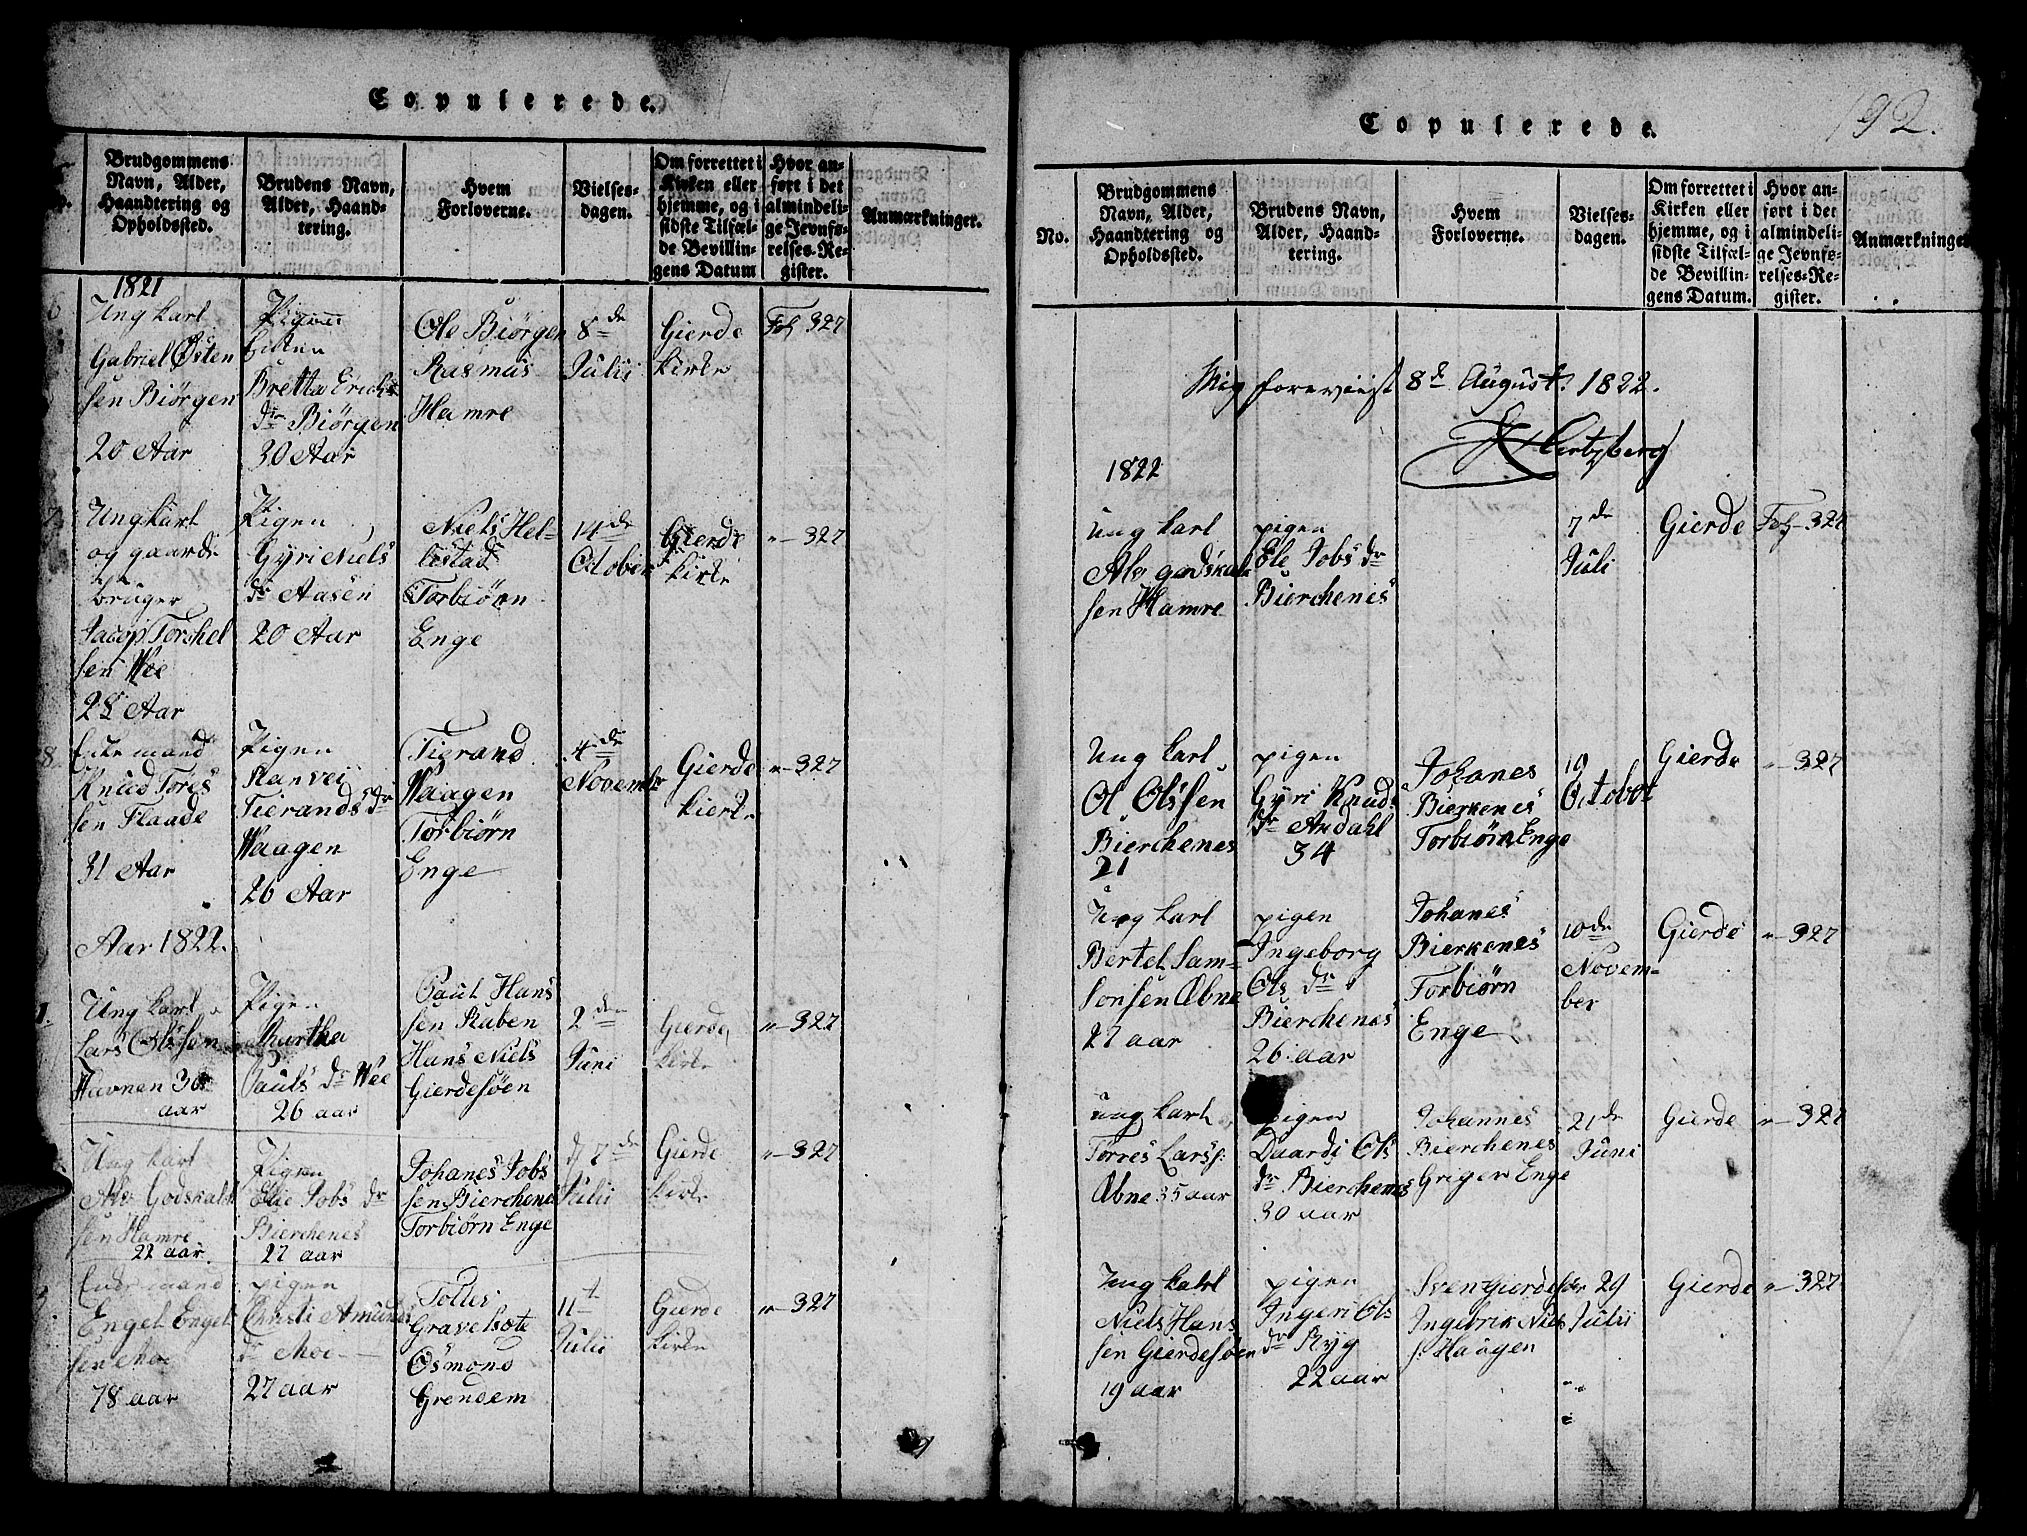 Copulerede.
Brudgommens
Navn, Alder,
Haandtering og
Opholdssted.
Brudens Navn,
Alder, Haand-
tering.
Hvem
Forloverne.
Vielses-
dagen.
Om forrettet i
Kirken eller
hjemme, og i
sidste Tilfæl-
de Bevillin-
gens Datum
Hvor an-
ført i det
almindeli-
ge Jevnfø-
relses-Re-
gister.
Anmærkninger.
1821
Ung karl
Gabriel Østen
sen Biørgen
20 Aar
Pigen
Bretta Erichs
dr Biørgen
30 Aar
Ole Biørgen
Rasmus
Hamre
8de
Julii
Gierde
kirke
Fol 327
7.
Ung karl
og gaard
bruger
Jacop Torchel
sen Wee
28 Aar
Pigen
Gyri Niels
dr Aasen
20 Aar
Niels Hel-
lestad
Torbiørn
Enge
14de
Octobер
Gierde
kirke
" 327
8.
Enke mand
Knud Tores
sen Flaade
31 Aar
Pigen
Ranvei
Tierands dr
Waagen
26 Aar
Tierand
Waagen
Torbiørn
Enge
4de
Novembr
Gierde
kierke
" 327
Aar 1822.
1.
Ung karl
Lars Olssen
Havnen 30
aar
Pigen
Martha
Pauls dr Wee
26 aar
Paul Hans
sen Raben
Hans Niels
Gierdesøen
2den
Juni
Gierde
kirke
" 327
Ung karl
Alv Godskalk
sen Hamre
22 aar
Pigen
Elie Jobs dr
Bierchenes
27 aar
Johanes Jobs
sen Bierchenes
Torbiørn Enge
d 7de
Julii
Gierde
kirke
" 327
Enke mand
Engel Engel
sen Moe
78 aar
pigen
Christi Amunds
dr Moe
27 aar
Tollei
Gravelsæte
Osmond
Grendem
11t
Julii
Gierde
kirke
" 327
192.
Copulerede.
No.
Brudgommens
Navn, Alder,
Haandtering og
Opholdssted.
Brudens Navn,
Alder, Haand-
tering.
Hvem
Forloverne.
Vielses-
dagen.
Om forrettet i
Kirken eller
hjemme, og i
sidste Tilfæl-
de Bevillin-
gens Datum.
Hvor an-
ført i det
almindeli-
ge Jevnfø-
relses-Re-
gister.
Anmærkninger
Mig foreviist 8d August 1822.
Hertzberg
1822
Ung karl
Alv godskalk
sen Hamre
pigen
Ele Jobs dr
Bierchenes
7de
Juli
Gierde
Fol 327
Ung karl
Ol Olssen
Bierchenes
21
pigen
Gyri Knuds
dr Andahl
34
Johanes
Bierkenes
Torbiørn Enge
19
October
Gierde
" 327
Ung karl
Bertel Sam-
sonsen Æbne
27 aar
pigen
Ingeborg
Ols dr
Bierchenes
26 aar
Johanes
Bierkenes
Torbiørn
Enge
10de
Novem-
ber
Gierde
" 327
ung karl
Torres Larss:
Æbne 35 aar
pigen
Daardi Ols
dr Bierchenes
30 aar
Johannes
Bierchenes
Griger Enge
21de
Juni
Gierde
" 327
Ung karl
Niels Hans
sen Gierdesøen
19 aar
pigen
Ingeri Ols
dr Ryg
22 aar
Sven Gierdesøen
Ingebrik Niels
s. Haagen
29
Julii
Gierde
" 327